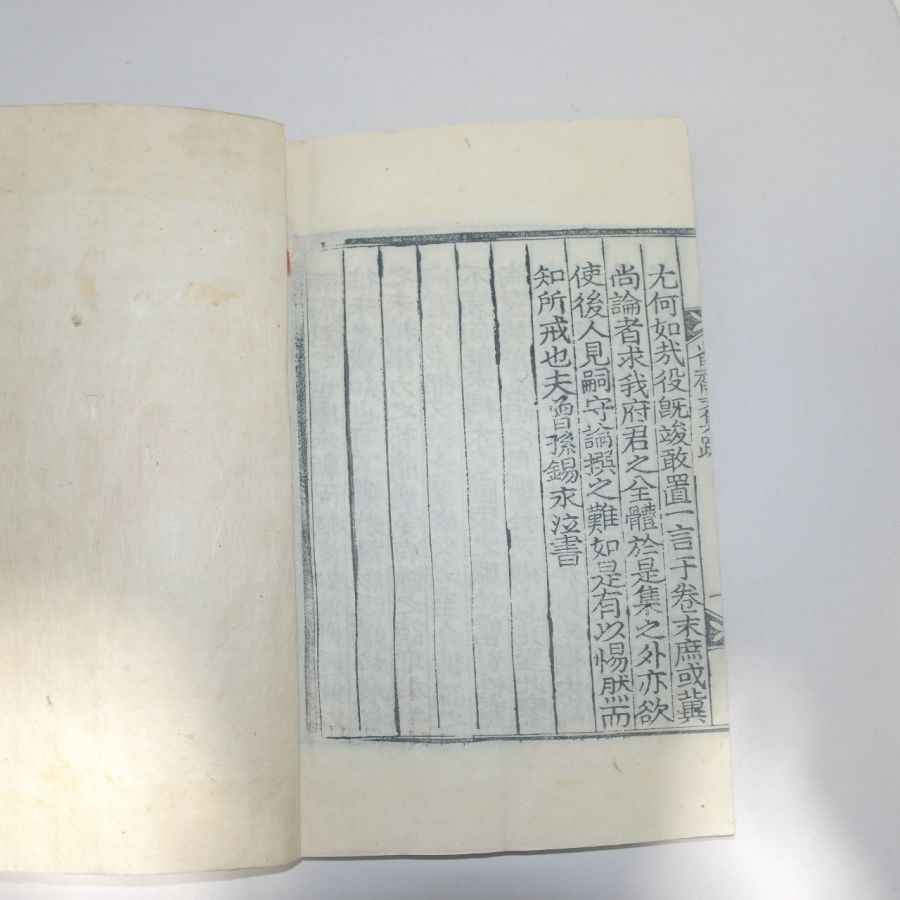 齋文集跋
一
尤何如㢤役旣竣敢置一言于卷末庶或冀
尚論者求我府君之全體於是集之外亦欲
使後人見嗣守論撰之難如是有以惕然而
知所戒也夫曾孫錫永泣書